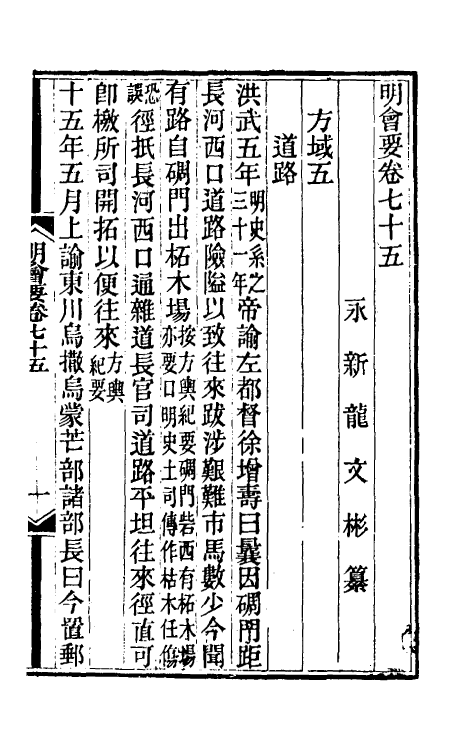 明會要卷七十五
永新龍文彬纂
方域五
道路
洪武五年明史系之三十一年帝諭左都督徐增壽曰曩因碉門距
長河西口道路險隘以致往來跋涉艱難市馬數少今聞
有路自碉門出柘木場按方輿紀要碉門砦西有柘木場亦要口明史土司傳作枯木任傷
恐誤徑抵長河西口通雜道長官司道路平坦往來徑直可
卽檄所司開拓以便往來方輿紀要
十五年五月上諭東川烏撒烏蒙芒部諸部長曰今置郵
明會要卷七十五
一